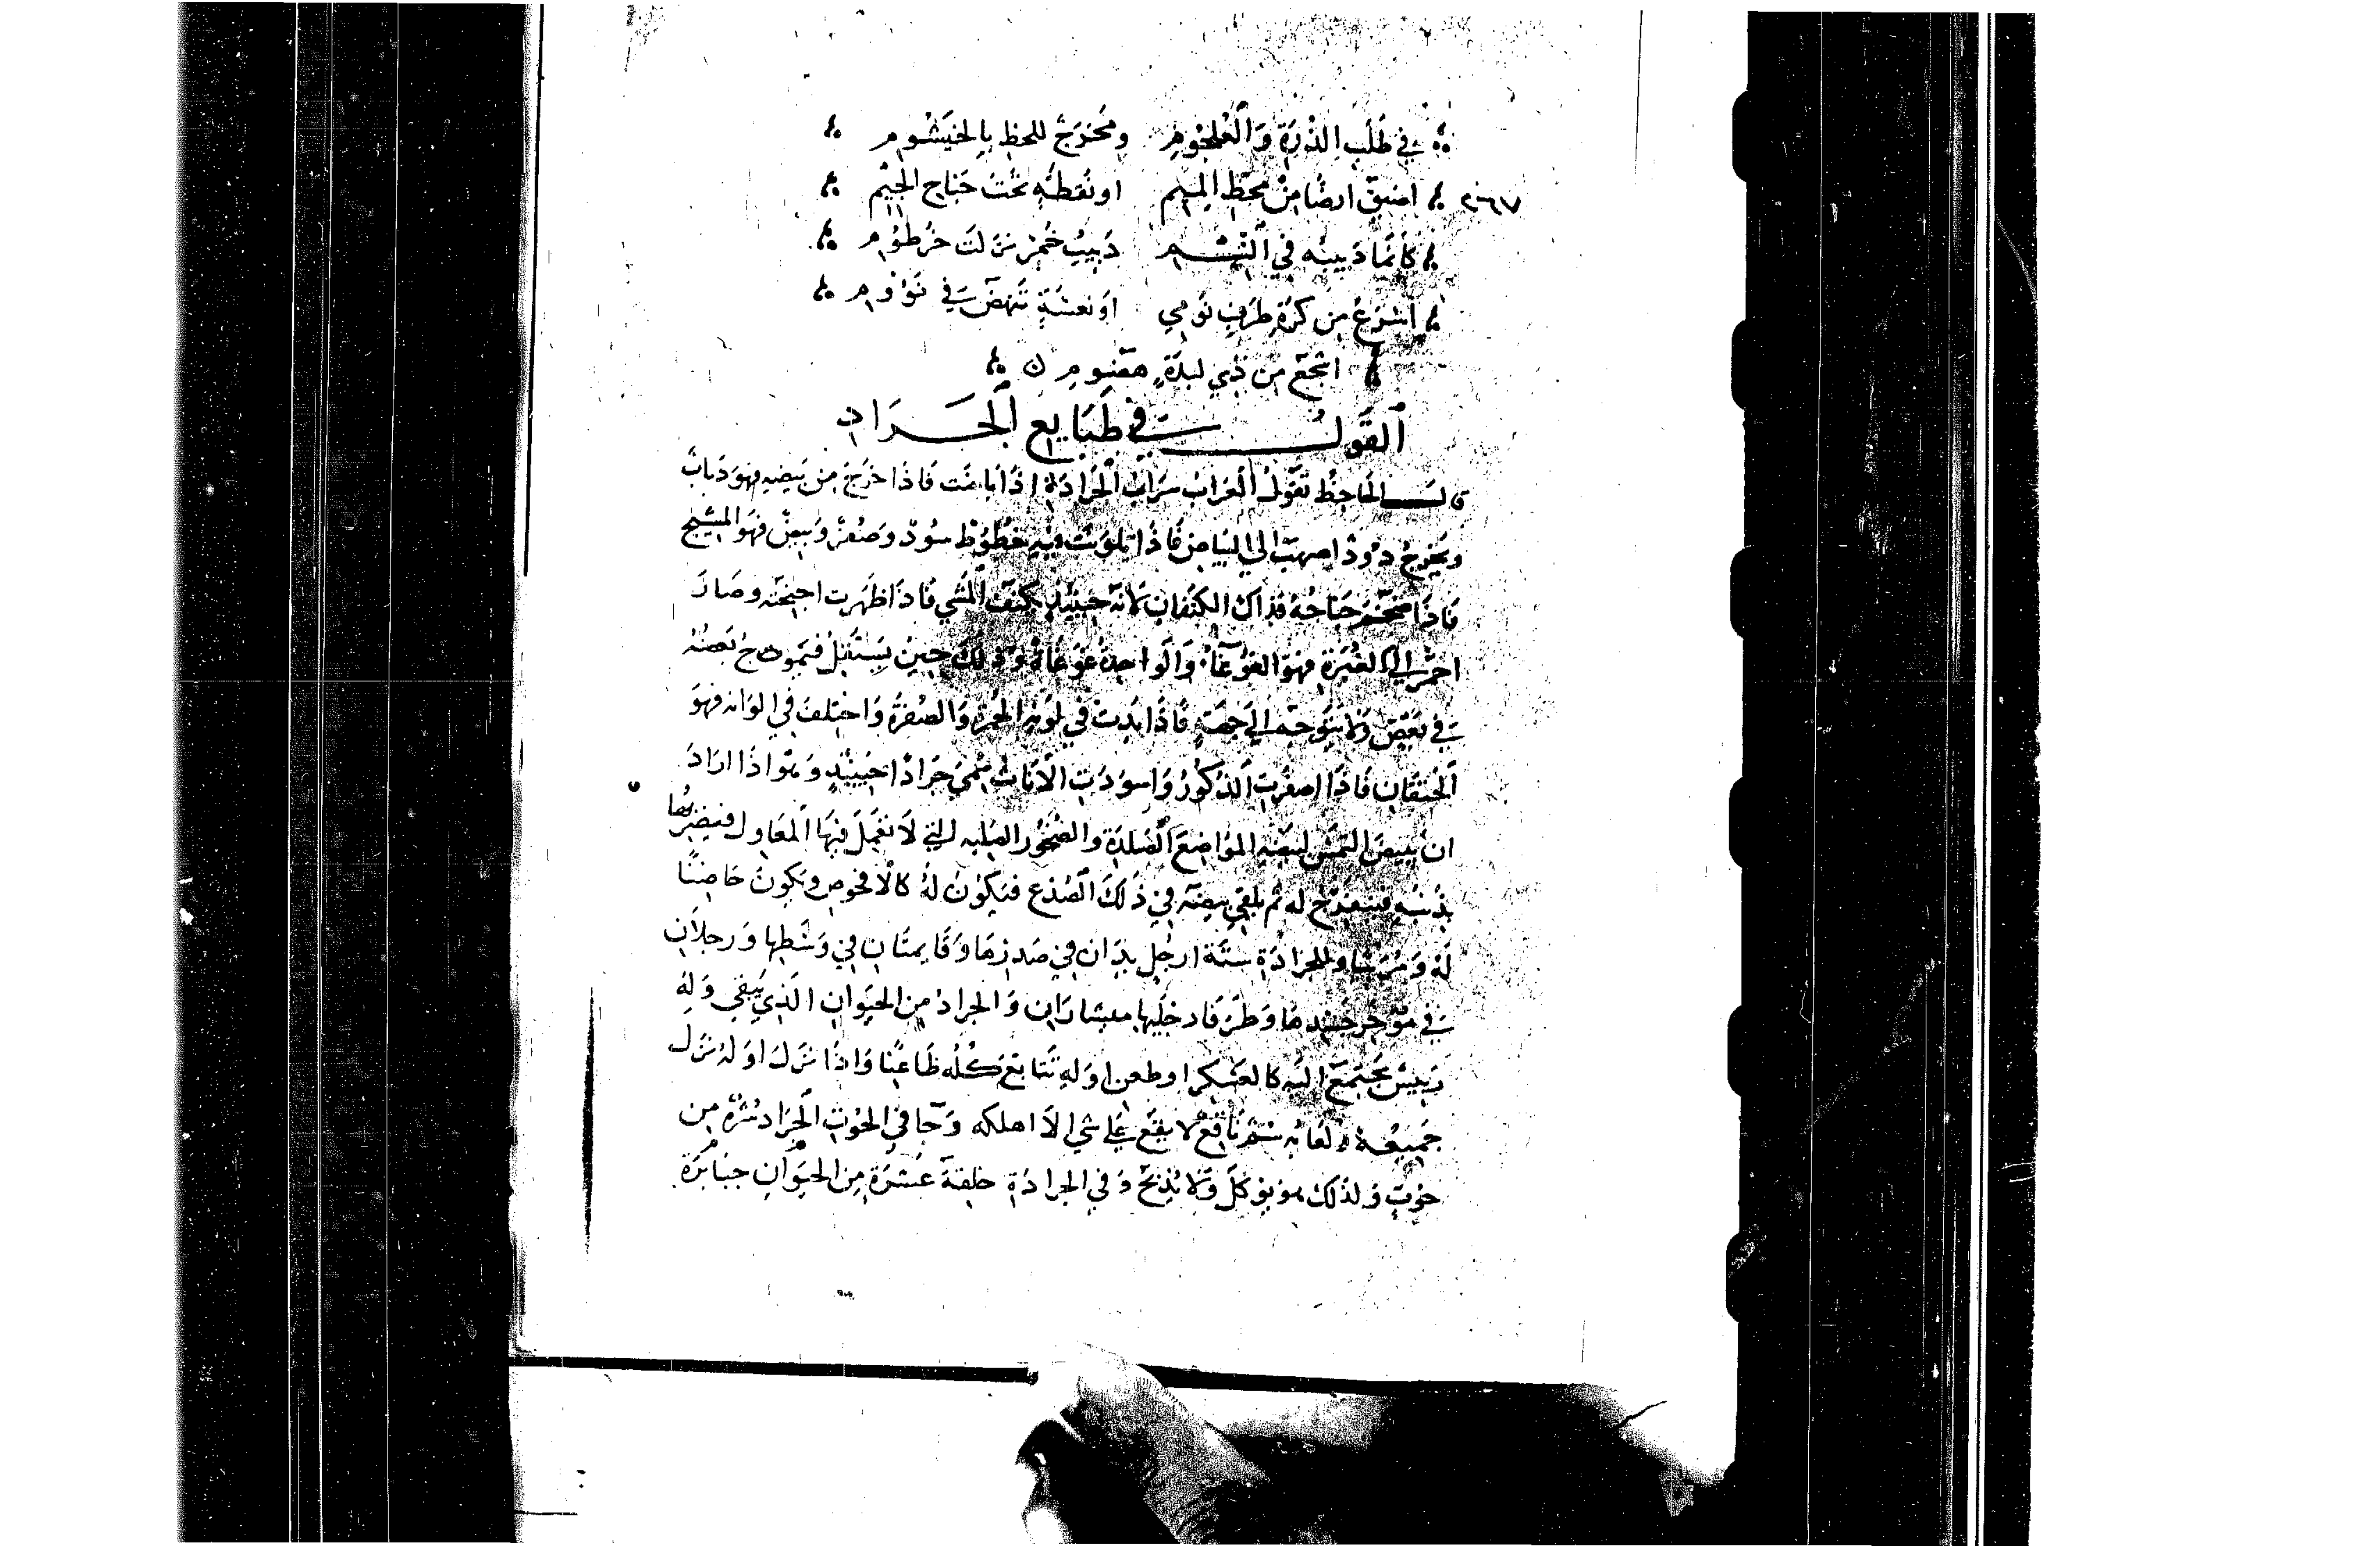 في طَلَبِ الذُرَةِ وَالْعُلجُومِ ومُخرَج للحظِ بِالخيَشُومِ
٢٦٧ اضيَق ارضًا مِن محَطِ المِيمِ او نُقطَةٍ تَحْتَ جَنَاحِ الجِيْمِ
كَأنمَا دَبِيبُه فِي دَبِيبُ خَمْرٍ نَزلَت خُرطُوم
اسْرَعُ مِن كَرَةِ طَرَفِ نَوْمِي اوَ نعسَةٍ تَنهَضُ فِي
اشْجَعُ مِن ذِي لبدَةٍ هَضُومِ ن
اَلقَولُ فِي طَبَايِعِ اَلجَرَادِ
قالَ الجَاحِظ تَقَولُ العَرَبُ سَرَاَت الجَرَادَة اذَا بَاضَت فَاذَا خَرَجَ مِن بَيضِهِ فهوَ دَبَات
ويَخرجُ دُودًا اصهبَ الي البَيَاضِ فَاذَا تلوَنت فِيهِ خُطُوطْ سُودٌ وَصُفرٌ وَبيضٌ فهوَ المسَيح
فَاذَا ضخم جَنَاحُهُ فذاكَ الكتفان لانهَ حِينَئِذٍ يكتِف المَشي فَاذَا ظهَرت اجنحَته وصَارَ
احمَر الي الغُبرَةِ فهوَ الغَوغَآءُ وَالوَاحِدَةُ غَوغَاةٌ وَذلكَ حِينَ يَستَقبل فيَموجُ بَعضُهُ
فِي بَعضٍ وَلا يَتَوَجه الي جهَةٍ فَاذَا بَدَت فِي لَونِهِ الحُمرَة وَالصُفرَة وَاختلفَ في الوَانه فهوَ
الخَيفَان فَاذَا اصفَرت الذُكُورُ وَاسوَدَتِ الاَنَاث سُمي جَرَادًا حِينَئِذٍ وَهوَ اذَا ارَادَ
ان يَبيضَ التمسَ لبَيضِهِ المَوَاضِعَ اَلصَلدَة والصُخُور الصَلبه التي لاَ تعَمَلَ فِيهَا اَلمعَاوِل فيَضربُهَا
بذَنَبِهِ فتنفرج له ثم يلقي بيضَه فِي ذَلكَ الصَدع فيَكُون لهُ كَالافحُوصِ ويَكُونُ حَاضِنًا
لهُ وَمُرَبيًا وَللجرادَةِ ستَة ارجُلٍ يدَانِ فِي صَدرهَا وَقَايمتَانِ فِي وَسَطِهَا وَرجلاَنِ
فِي مُؤخرِ جَسَدِهَا وَطَرَفَا رِجلَيهَا منشارَانِ وَالجراد مِن الحيَوانِ الذِي وَلهُ
رَييسٌ يَجتَمع اليَه كَالعَسكَر اوطعن اوَله تتابَع كُله ظَاعِنًا وَاذَا نَزلَ اوَلهُ نَزَل
جَميعُهُ وَلعَابُه سَمٌ نَاقِعٌ لا يَقَع عَلي شي الاَ اهلكه وَجَا في الجَرَاد نثرة مِن
حُوتٍ وَلذَلكَ هو يوكَل وَلا يُذبَح وَفي الجرادَةِ خلقَة عَشرَةٍ مِن الحيَوانِ جبَابرَة